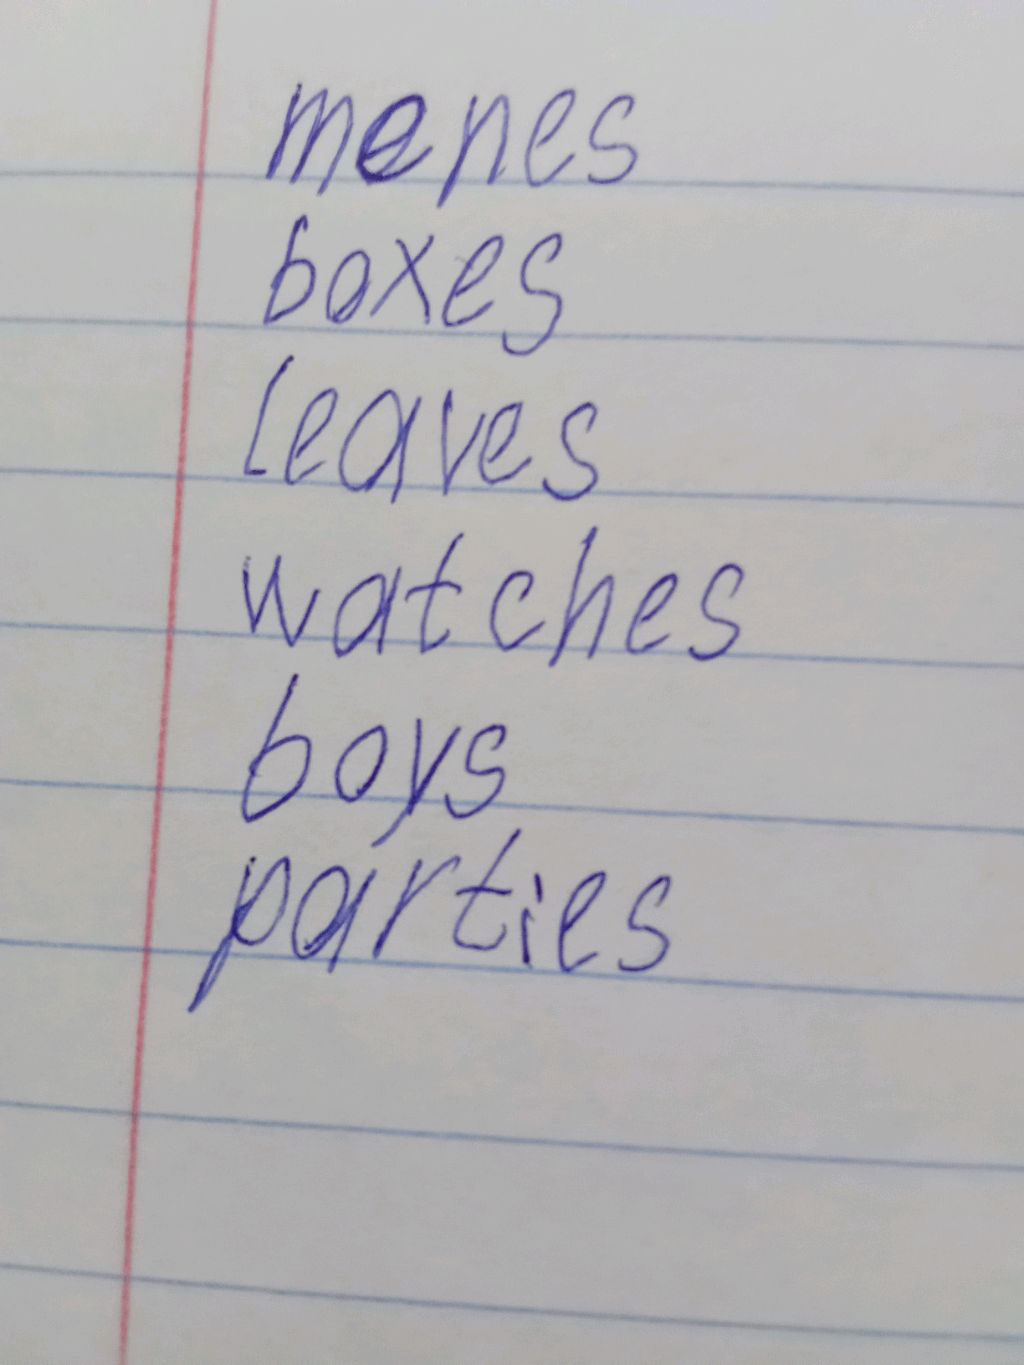 menes
boxes
leaves
watches
boys
parties